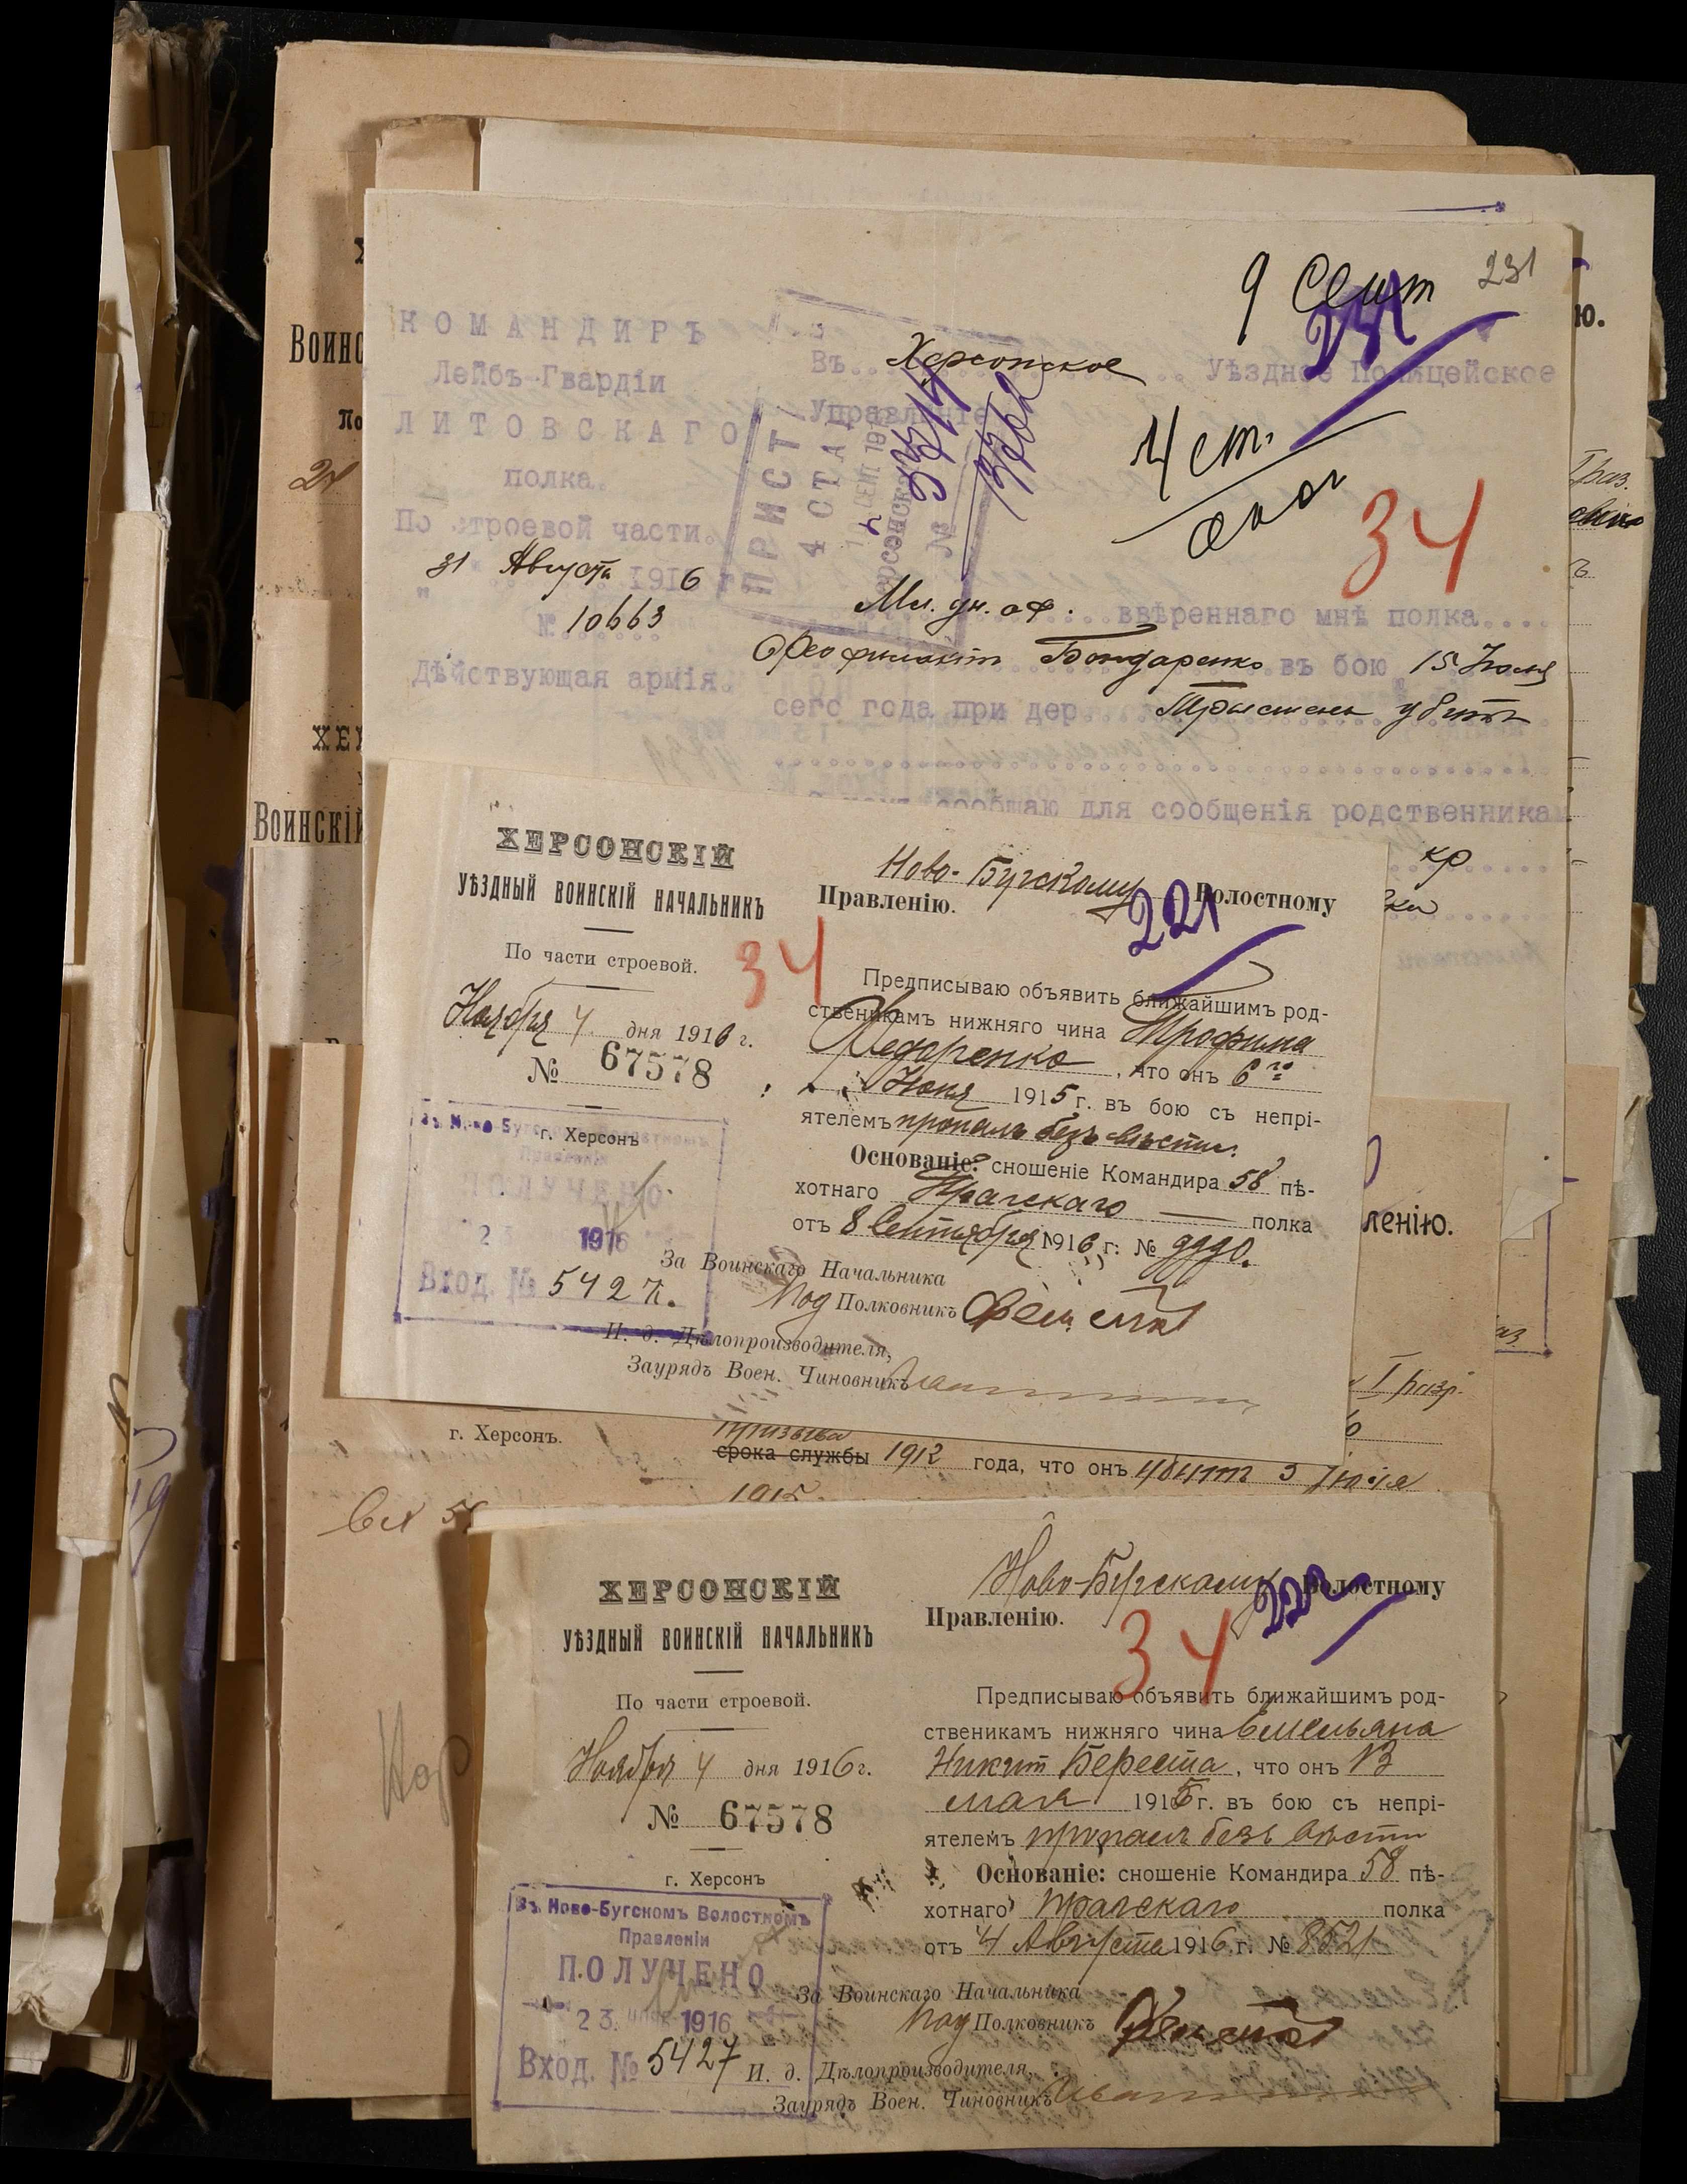 9 Сент 231
231
КОМАНДИРЪ
Лейбъ-Гвардіи
ЛИТОВСКАГО
полка.
По строевой части.
31 Августа 1916
№ 10663
Дѣйствующая армія.
Въ Херсонское Уѣздное Полицейское
Управленіе
ПРИСТ
4 СТА
№
4 ст.
34
Мл. ун. оф. ввѣреннаго мнѣ полка
Феофилактъ Бондаренко въ бою 15 Іюля
сего года при дер. Трыстень убитъ
сообщаю для сообщенія родственникам
кр
ю.
Воинс
По
24
ХЕР
Воинскій
ХЕРСОНСКІЙ
УѢЗДНЫЙ ВОИНСКІЙ НАЧАЛЬНИКЪ
По части строевой.
Ноября 4 дня 1916 г.
№ 67578
г. Херсонъ
ПОЛУЧЕНО
2 1916
Вход. № 5427.
34
Ново-Бугскому Волостному
Правленію.
221
Предписываю объявить ближайшимъ род-
ственикамъ нижняго чина Трофима
Федоренко, что онъ 6го
Іюня 1915 г. въ бою съ непрі-
ятелемъ пропалъ безъ вѣсти.
Основаніе: сношеніе Командира 58 пѣ-
хотнаго Прагскаго полка
отъ 8 Сентября 1916 г: № 9990.
За Воинскаго Начальника
Под Полковникъ
И. д. Дѣлопроизводителя,
Заурядъ Воен. Чиновникъ
ленію.
I разр.
г. Херсонъ.
призыва
срока службы 1912 года, что онъ убитъ 3 Іюля
1915
ХЕРСОНСКІЙ
УѢЗДНЫЙ ВОИНСКІЙ НАЧАЛЬНИКЪ
По части строевой.
Ноября 4 дня 1916 г.
№ 67578
г. Херсонъ
Въ Ново-Бугскомъ Волостномъ
Правленіи
ПОЛУЧЕНО
23 1916
Вход. № 5427
Ново-Бугскому Волостному
Правленію.
222
34
Предписываю объявить ближайшимъ род-
ственикамъ нижняго чина Емельяна
Никит Береста, что онъ 13
мая 1915 г. въ бою съ непрі-
ятелемъ пропалъ безъ вѣсти
Основаніе: сношеніе Командира 58 пѣ-
хотнаго Прагскаго полка
отъ 4 Августа 1916 г. № 8521
За Воинскаго Начальника
Под Полковникъ
И. д. Дѣлопроизводителя,
Заурядъ Воен. Чиновникъ